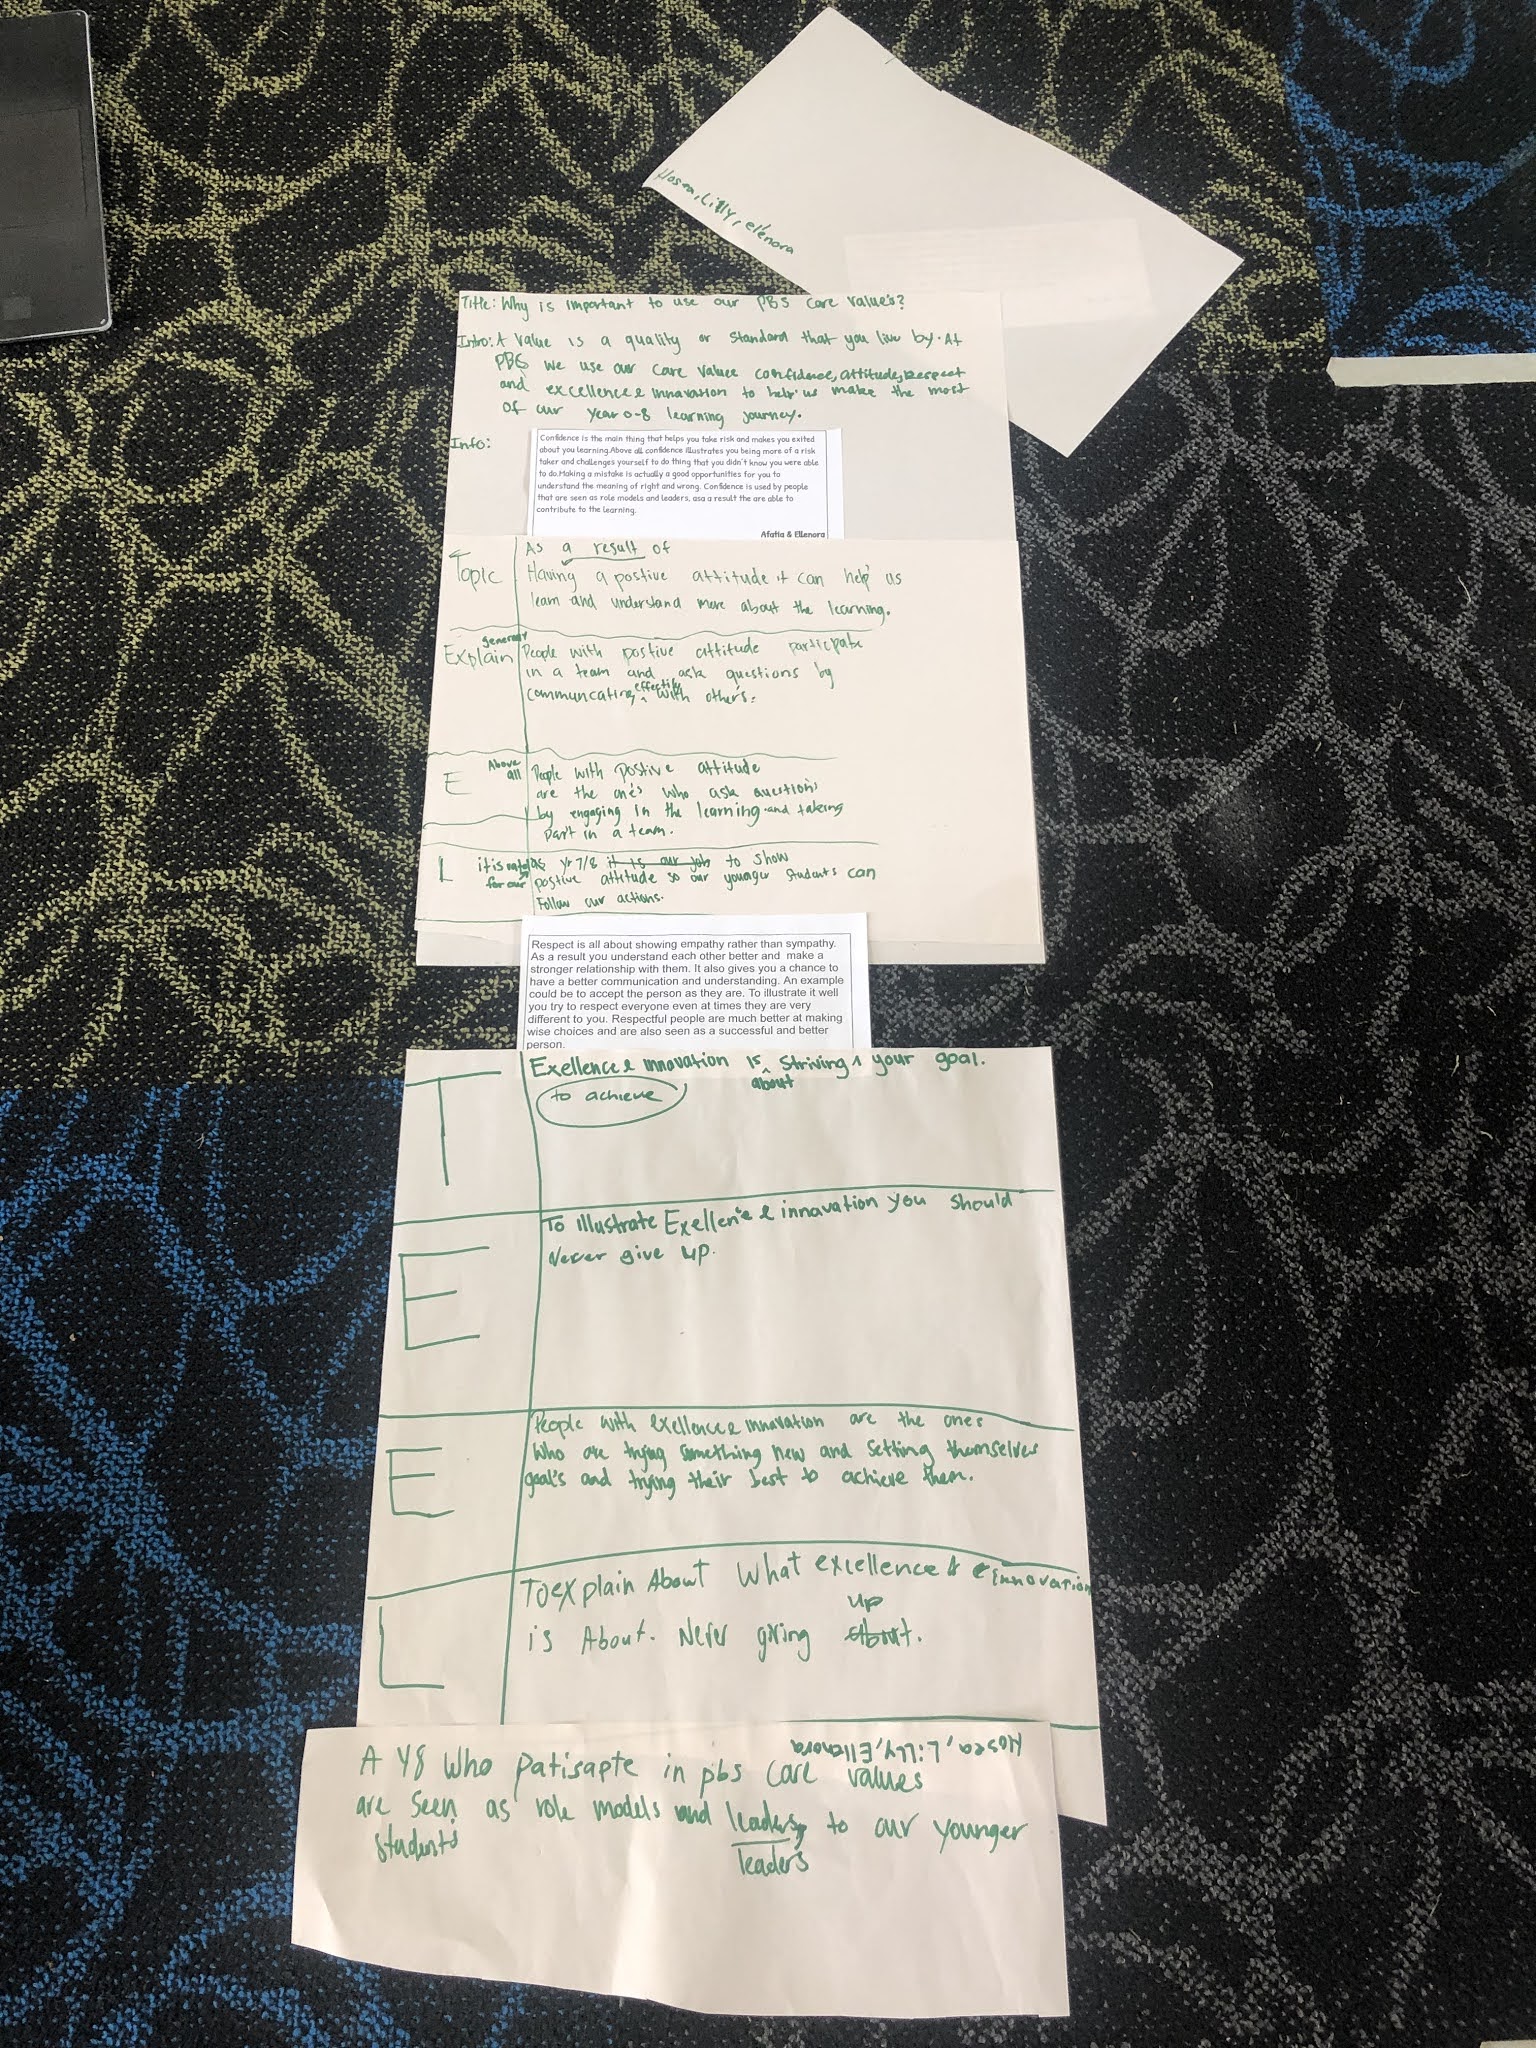 Hosea, Lilly, ellenora
Title: Why is important to use our PBS care value's?
Intro: A value is a quality or standard that you live by. At
PBS we use our care values confidence, attitude, Respect
and excellence & innavation to help us make the most
of our year 0-8 learning journey.
Info:
Confidence is the main thing that helps you take risk and makes you exited
about you learning.Above all confidence illustrates you being more of a risk
taker and challenges yourself to do thing that you didn't know you were able
to do.Making a mistake is actually a good opportunities for you to
understand the meaning of right and wrong. Confidence is used by people
that are seen as role models and leaders, asa a result the are able to
contribute to the learning.
Afatia & Ellenora
As a result of
Topic Having a postive attitude it can help us
learn and understand more about the learning.
Explain People with postive attitude participate
in a team and ask questions by
communcating effectily with other's.
Above all
E People with postive attitude
are the one's who ask questions
by engaging in the learning and taking
part in a team.
L it is for our yr 7/8 it is our job to show
postive attitude so our younger students can
Follow our actions.
Respect is all about showing empathy rather than sympathy.
As a result you understand each other better and make a
stronger relationship with them. It also gives you a chance to
have a better communication and understanding. An example
could be to accept the person as they are. To illustrate it well
you try to respect everyone even at times they are very
different to you. Respectful people are much better at making
wise choices and are also seen as a successful and better
person.
T Exellence & innovation is striving your goal.
about
to achieve
E To illustrate Exellence & innavation you should
Never give up.
E People with exellence & innavation are the ones
who are trying something new and setting themselves
goal's and trying their best to achieve them.
L To explain About what excellence & innovation
up
is About. Never giving about.
Hosea, Lilly, Ellenora
A Y8 Who patisapte in pbs care values
are seen as role models and leaders, to our younger
students leaders